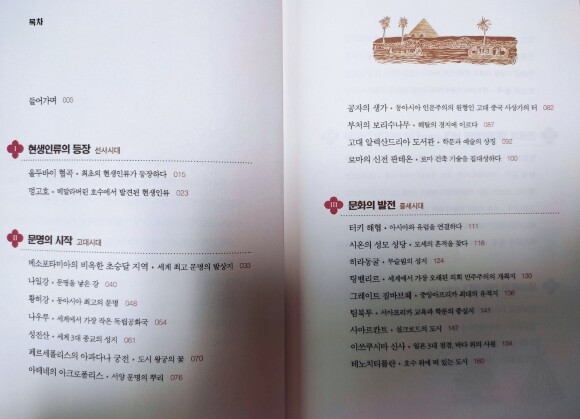 목차
들어가며 005
I 현생인류의 등장 선사시대
올두바이 협곡 • 최초의 현생인류가 등장하다 015
멍고호 • 메말라버린 호수에서 발견된 현생인류 023
II 문명의 시작 고대시대
메소포타미아의 비옥한 초승달 지역 • 세계 최고 문명의 발상지 033
나일강 • 문명을 낳은 강 040
황허강 • 동아시아 최고의 문명 048
나우루 • 세계에서 가장 작은 독립공화국 054
성전산 • 세계 3대 종교의 성지 061
페르세폴리스의 아파다나 궁전 • 도시 왕궁의 꽃 070
아테네의 아크로폴리스 • 서양 문명의 뿌리 076
공자의 생가 • 동아시아 인문주의의 원형인 고대 중국 사상가의 터 082
부처의 보리수나무 • 해탈의 경지에 이르다 087
고대 알렉산드리아 도서관 • 학문과 예술의 상징 092
로마의 신전 판테온 • 로마 건축 기술을 집대성하다 100
III 문화의 발전 중세시대
터키 해협 • 아시아와 유럽을 연결하다 111
시온의 성모 성당 • 모세의 흔적을 찾다 118
히라동굴 • 무슬림의 성지 124
팅벨리르 • 세계에서 가장 오래된 의회 민주주의의 개척지 130
그레이트 짐바브웨 • 중앙아프리카 최대의 유적지 136
팀북투 • 서아프리카 교육과 학문의 중심지 141
사마르칸트 • 실크로드의 도시 147
이쓰쿠시마 신사 • 일본 3대 절경, 바다 위의 사원 154
테노치티틀란 • 호수 위에 떠 있는 도시 160